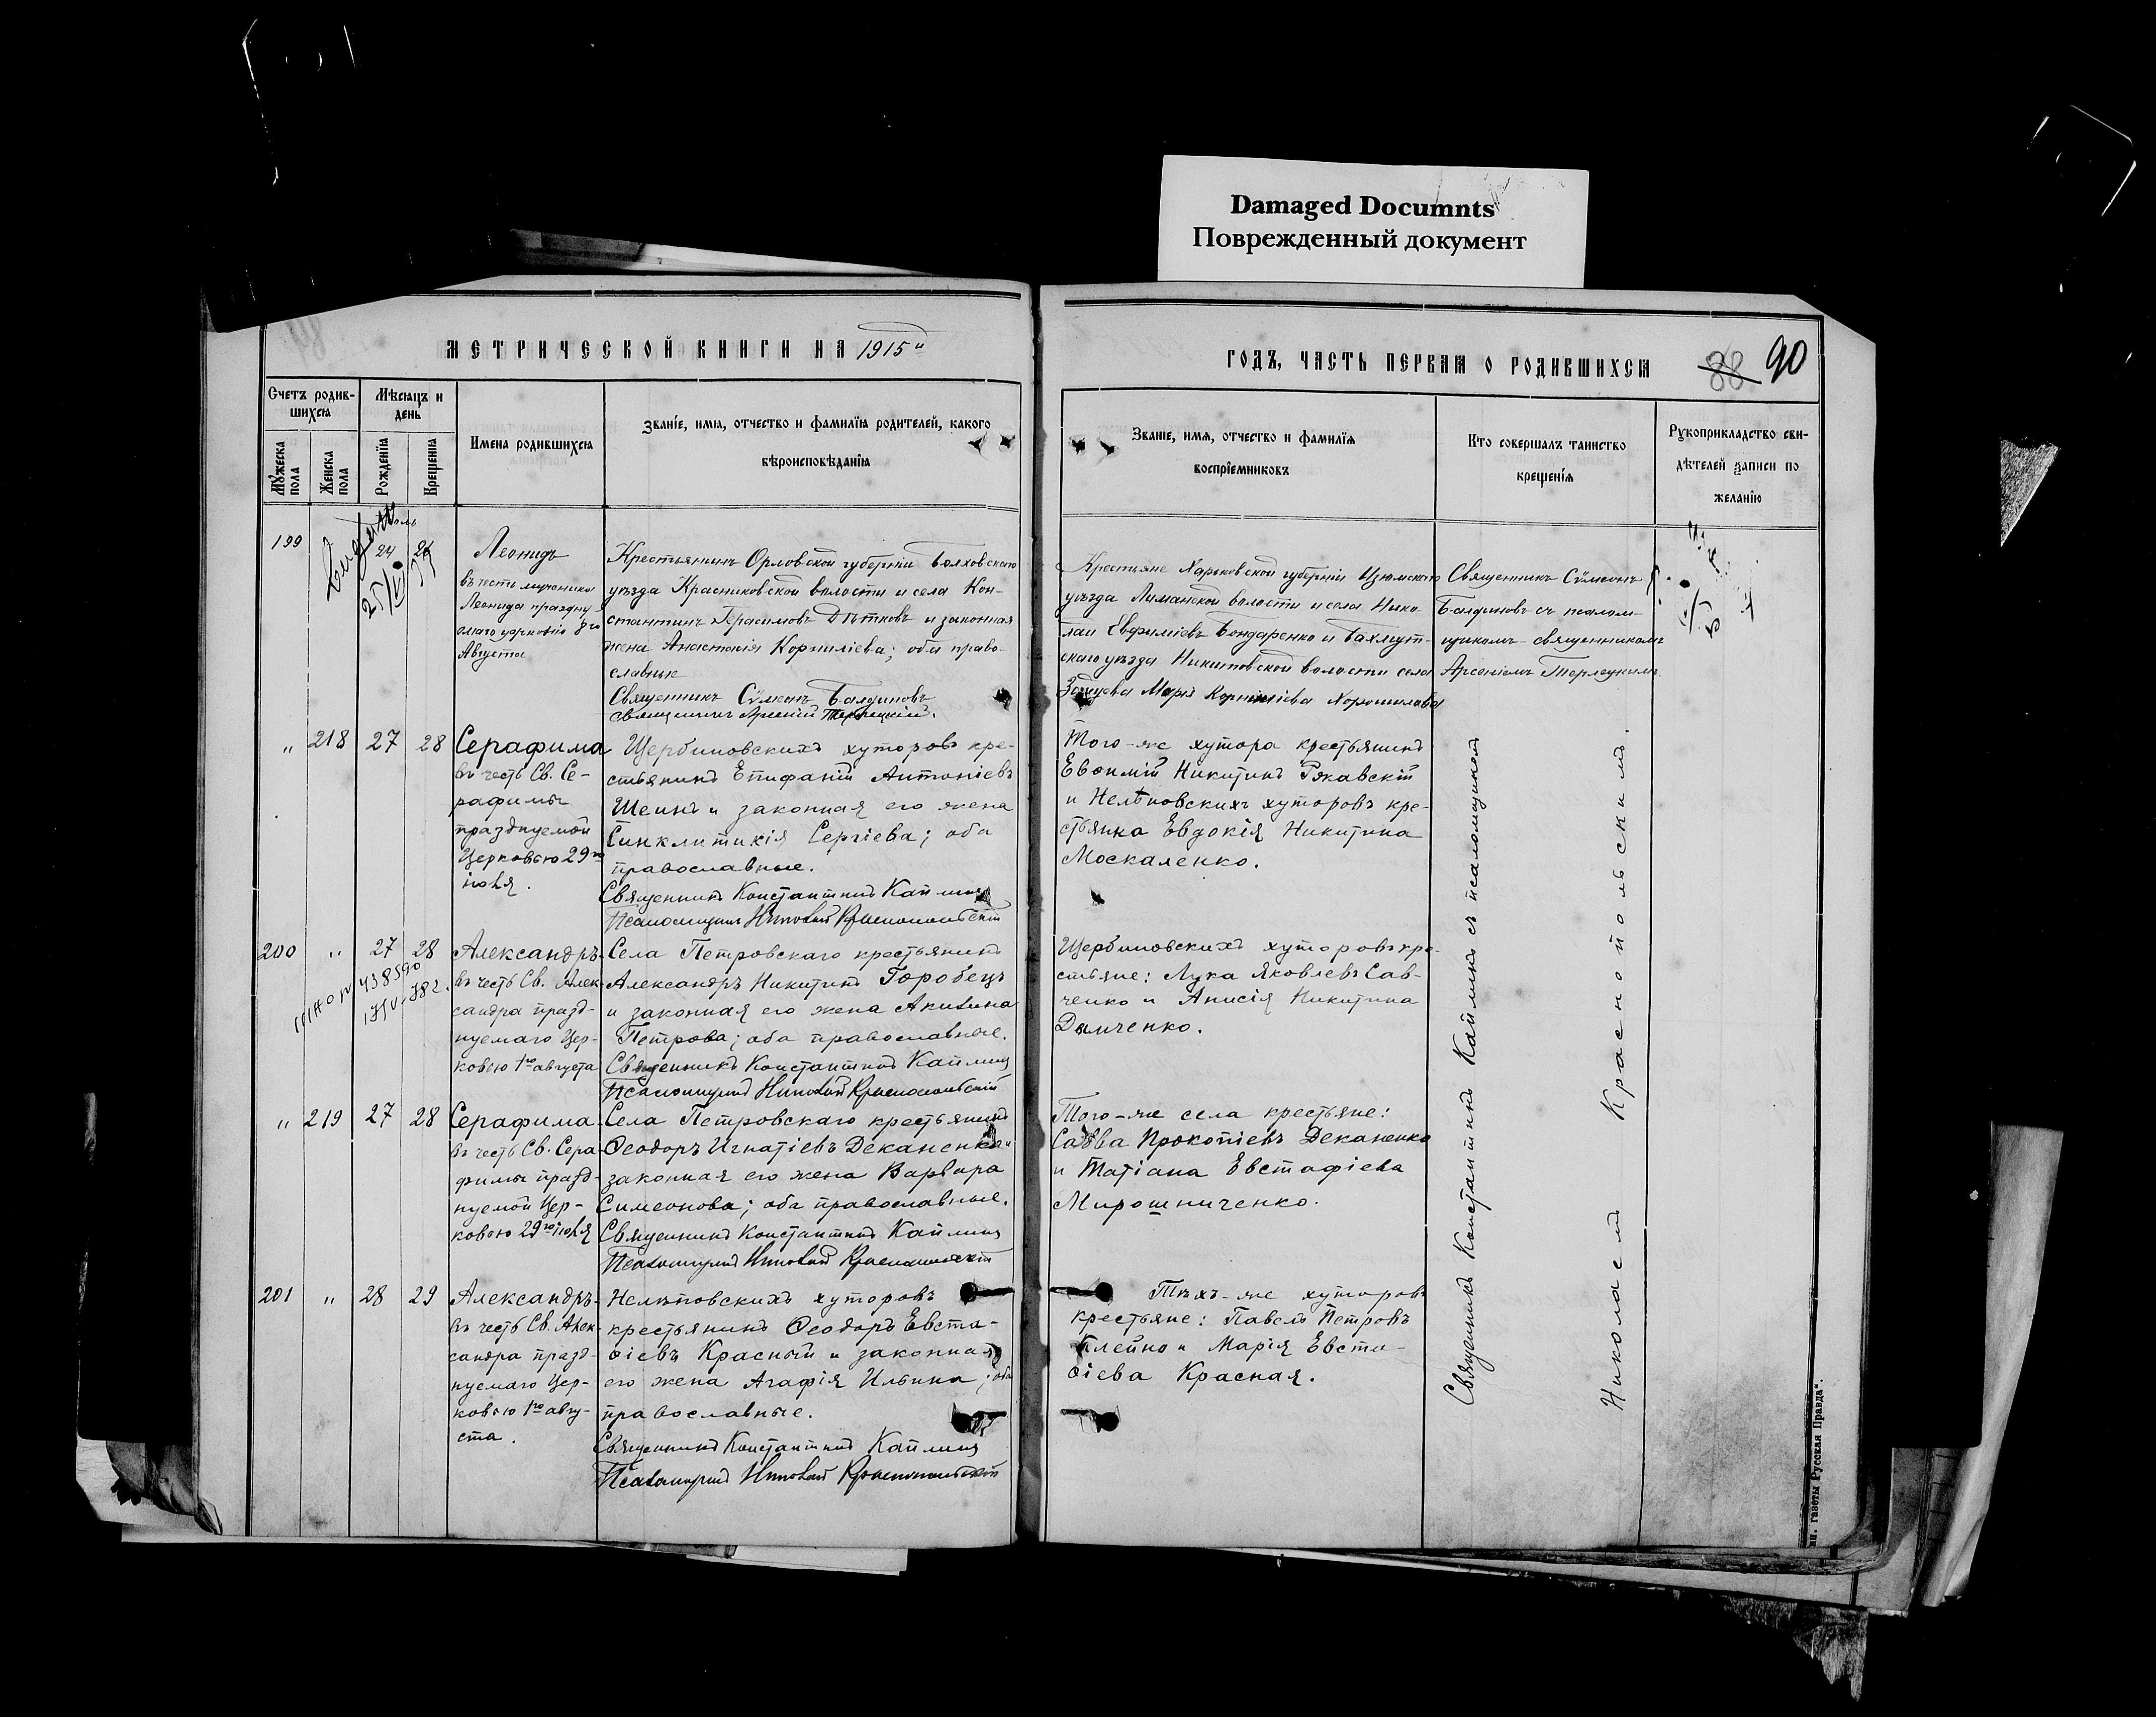 Damaged Documnts
Поврежденный документ
МЕТРИЧЕСКОЙ КНИГИ НА 1915й
ГОДЪ, ЧАСТЬ ПЕРВАЯ О РОДИВШИХСЯ
88 90
Счетъ родив-
шихся
Мѣсяцъ и
день
Мужеска
пола
Женска
пола
Рожденія
Крещенія
Имена родившихся
Званіе, имя, отчество и фамилія родителей, какого
вѣроисповѣданія
Званіе, имя, отчество и фамилія
воспріемниковъ
Кто совершалъ таинство
крещенія
Рукоприкладство сви-
дѣтелей записи по
желанію
199
24 26
Леонидъ
въ честь мученика
Леонида праздну-
емаго церковію 8го
Августа
Крестьянинъ Орловской губерніи Болховскаго
уѣзда Красниковской волости и села Кон-
стантинъ Герасимовъ Дѣтковъ и законная
жена Анастасія Корниліева; оба право-
славные
Священникъ Сѵмеонъ Балдиновъ
священникъ Арсеній Терлецкій.
Крестьяне Харьковской губерніи Изюмскаго
уѣзда Лиманской волости и села Нико-
лай Евфиміевъ Бондаренко и Бахмут-
скаго уѣзда Никитовской волости села
Зайцева Марія Корниліева
Священникъ Сѵмеонъ
Балдиновъ съ псалом-
щикомъ священникомъ
Арсеніемъ Терлецкимъ.
" 218 27 28
Серафима
въ честь Св. Се-
рафимы
празднуемой
Церковью 29го
іюля.
Щербиновскихъ хуторовъ кре-
стьянинъ Епифаній Антоніевъ
Шеинъ и законная его жена
Синклитикія Сергіева; оба
православные.
Священникъ Константинъ Каплинъ
Псаломщикъ Николай Краснопольскій
Того-же хутора крестьянинъ
Евѳимій Никитинъ Ржавскій
и Нелѣповскихъ хуторовъ кре-
стьянка Евдокія Никитина
Москаленко.
200 " 27 28
438590
Александръ
въ честь Св. Алек-
сандра празд-
нуемаго Цер-
ковью 1го августа
Села Петровскаго крестьянинъ
Александръ Никитинъ Горобецъ
и законная его жена Акилина
Петрова; оба православные.
Священникъ Константинъ Каплинъ
Псаломщикъ Николай Краснопольскій
Щербиновскихъ хуторовъ кре-
стьяне: Лука Яковлевъ Сав-
ченко и Анисія Никитина
Демченко.
" 219 27 28
Серафима
въ честь Св. Сера-
фимы празд-
нуемой Цер-
ковью 29го іюля
Села Петровскаго крестьянинъ
Ѳеодоръ Игнатіевъ Деканенко и
законная его жена Варвара
Симеонова; оба православные.
Священникъ Константинъ Каплинъ
Псаломщикъ Николай Краснопольскій
Того-же села крестьяне:
Савва Прокопіевъ Деканенко
и Татіана Евстафіева
Мирошниченко.
201 " 28 29
Александръ
въ честь Св. Алек-
сандра празд-
нуемаго Цер-
ковью 1го авгу-
ста.
Нелѣповскихъ хуторовъ
крестьянинъ Ѳеодоръ Евста-
ѳіевъ Красный и законная
его жена Агафія Ильина; оба
православные.
Священникъ Константинъ Каплинъ
Псаломщикъ Николай Краснопольскій
Тѣхъ-же хуторовъ
крестьяне: Павелъ Петровъ
Клейно и Марія Евста-
ѳіева Красная.
Священникъ Константинъ Каплинъ съ псаломщикомъ
Николаемъ Краснопольскимъ.
газеты Русская Правда".